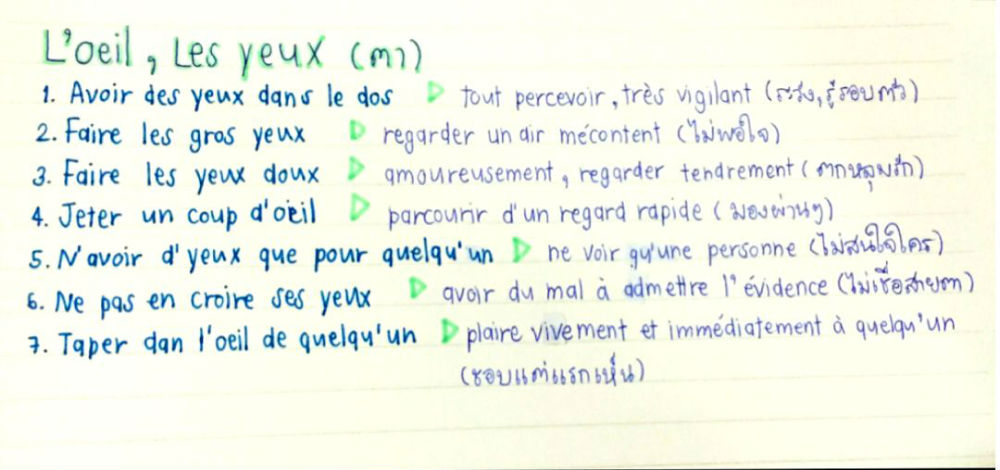 L'oeil, Les yeux (ตา)
1. Avoir des yeux dans le dos ▷ tout percevoir, très vigilant (ระวัง, รู้รอบตัว)
2. Faire les gros yeux ▷ regarder un air mécontent (ไม่พอใจ)
3. Faire les yeux doux ▷ amoureusement, regarder tendrement (ตกหลุมรัก)
4. Jeter un coup d'oeil ▷ parcourir d'un regard rapide (มองผ่านๆ)
5. N'avoir d'yeux que pour quelqu'un ▷ ne voir qu'une personne (ไม่สนใจใคร)
6. Ne pas en croire ses yeux ▷ avoir du mal à admettre l'évidence (ไม่เชื่อสายตา)
7. Taper dan l'oeil de quelqu'un ▷ plaire vivement et immédiatement à quelqu'un
(ชอบแต่แรกเห็น)